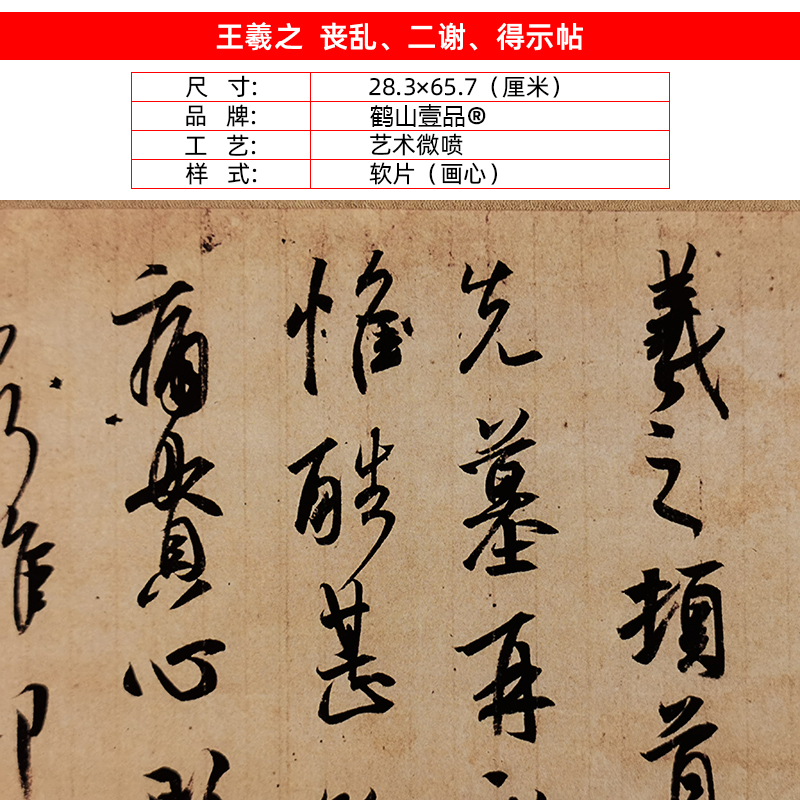 王羲之 丧乱、二谢、得示帖
尺 寸: 28.3×65.7（厘米）
品 牌: 鹤山壹品®
工 艺: 艺术微喷
样 式: 软片（画心）
羲之頓首
先墓再
惟酷甚
痛貫心